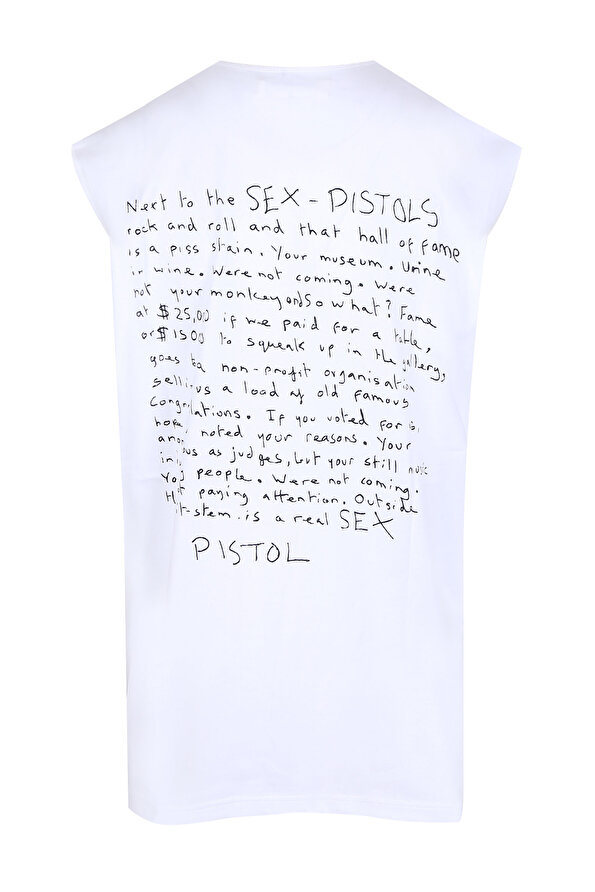 Next to the SEX-PISTOLS
rock and roll and that hall of fame
is a piss stain. Your museum. Urine
in wine. Were not coming. Were
not your monkey and So what? Fame
at $25,00 if we paid for a table,
or $1500 to squeak up in the gallery,
goes to a non-profit organisation
selling us a load of old famous
Congratulations. If you voted for
noted your reasons. Your
as judges, but your still music
people. Were not coming.
paying attention. Outside
-stem. is a real SEX
PISTOL